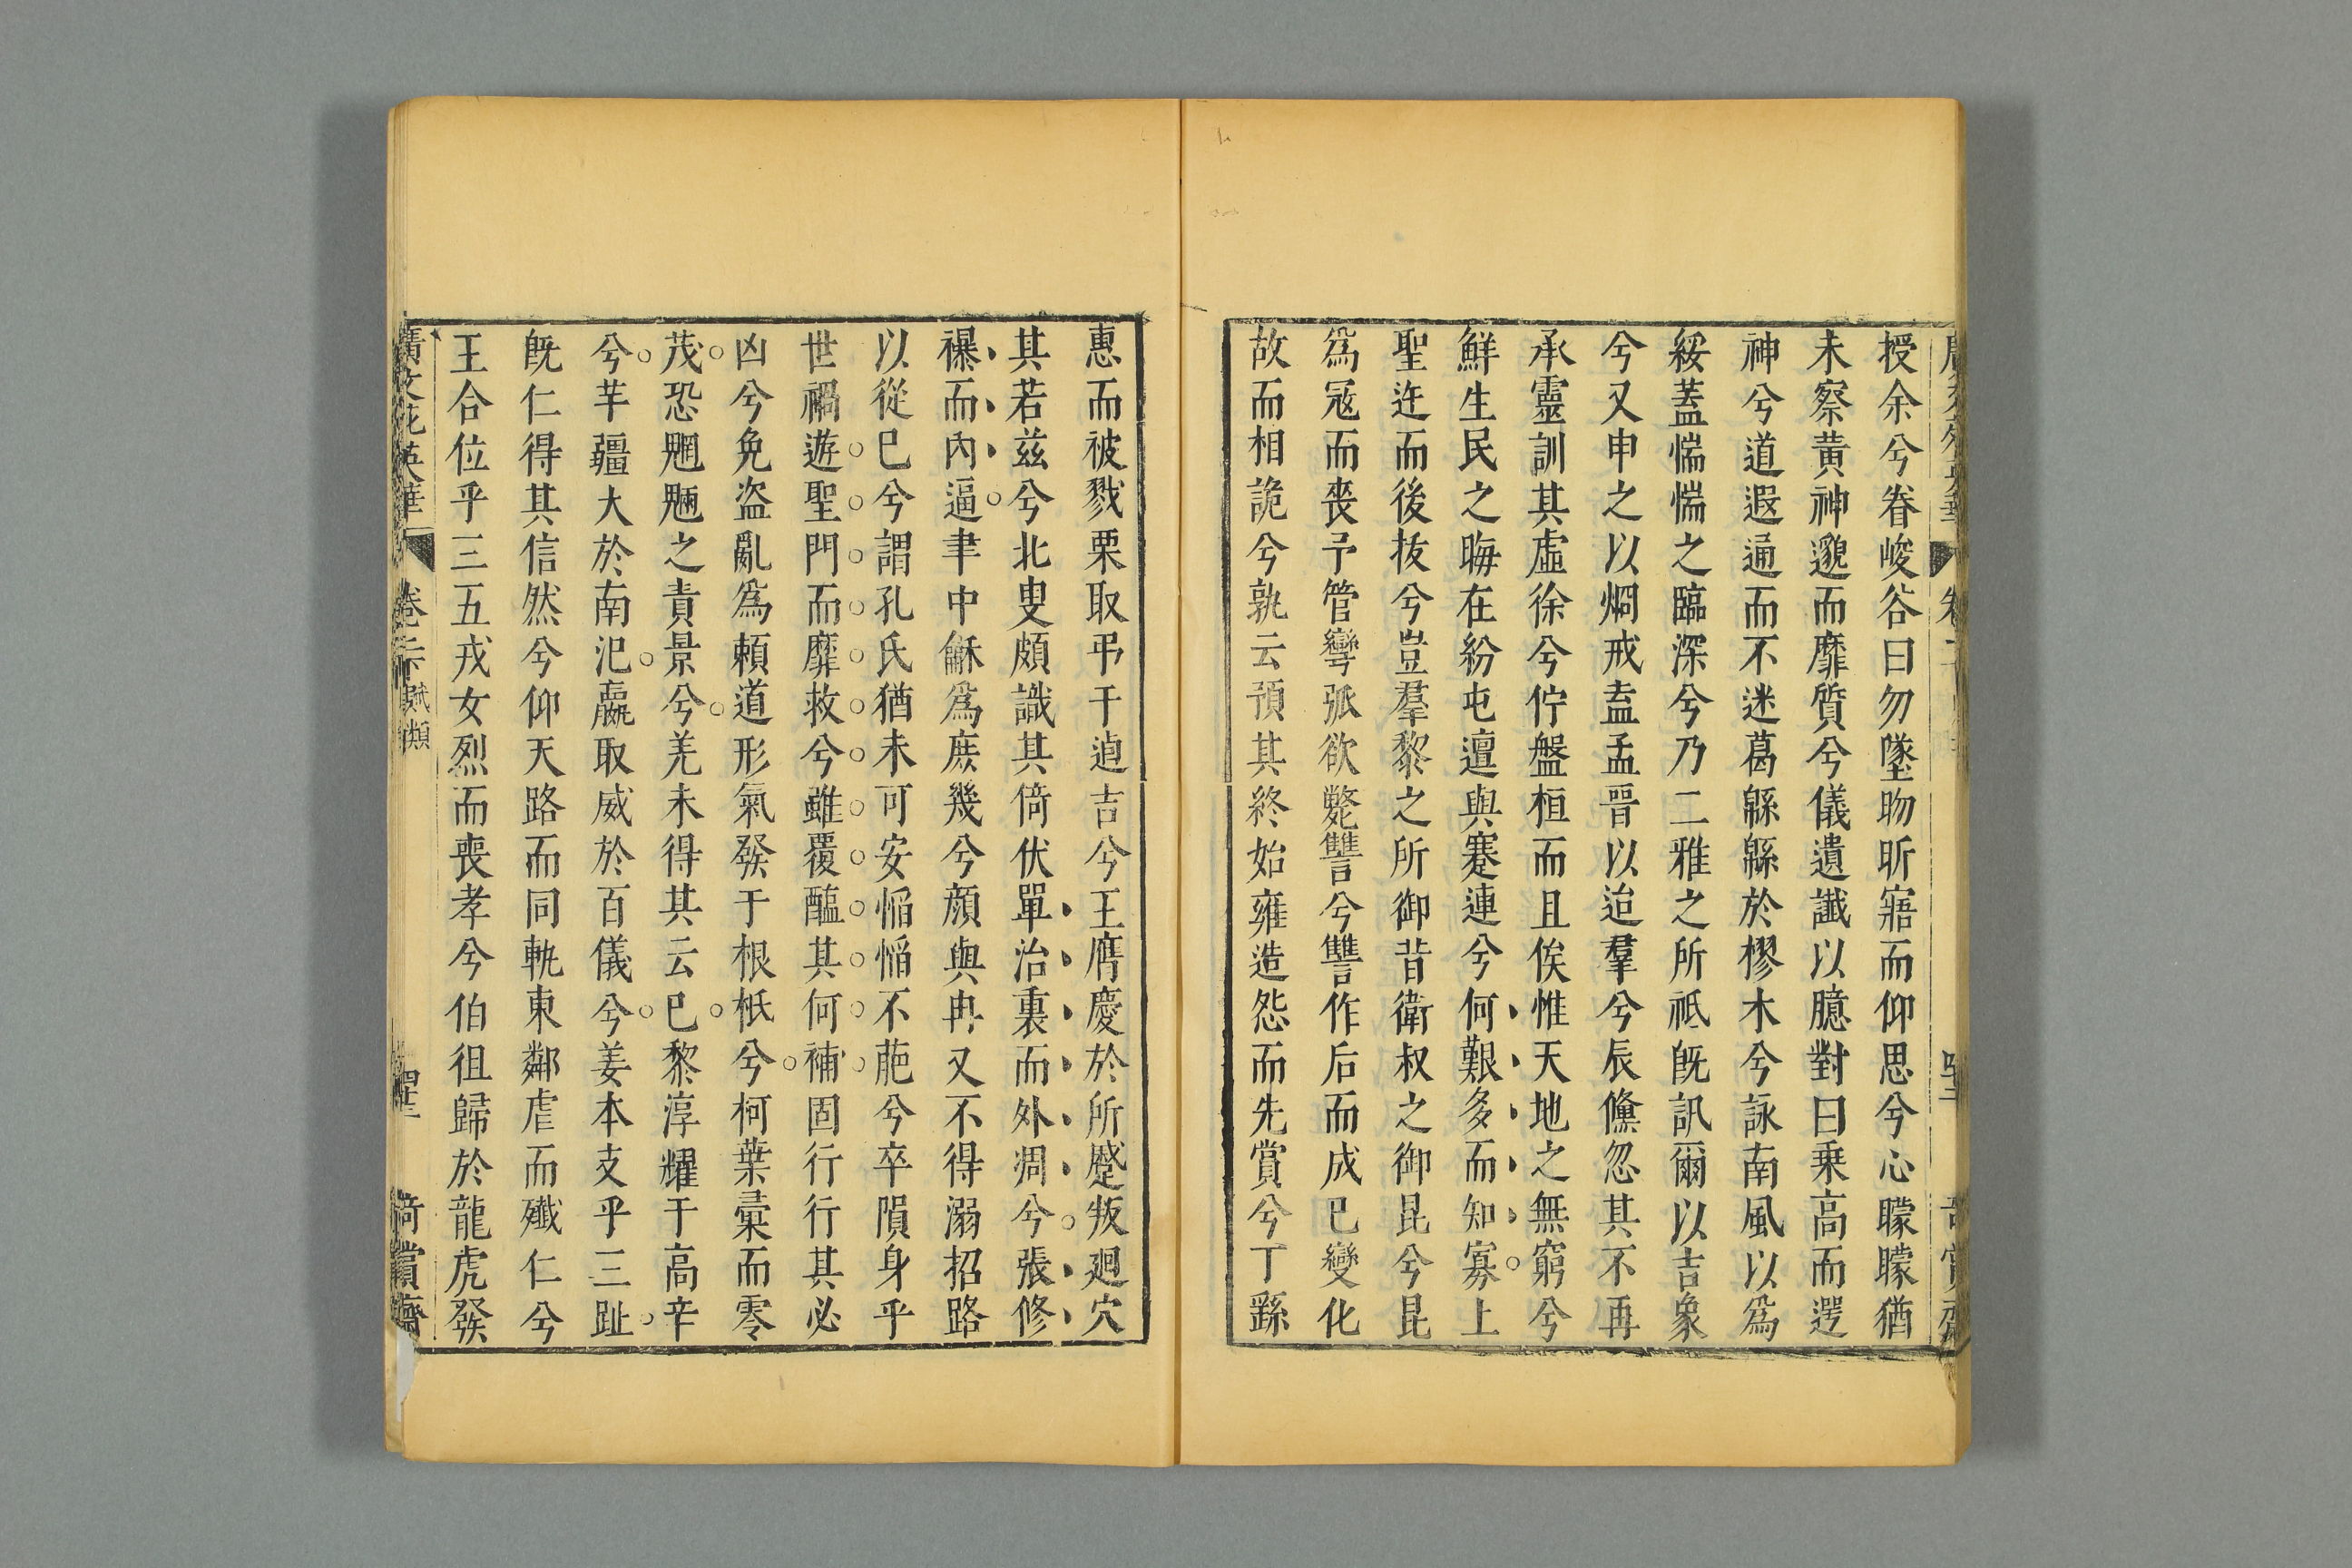 授余兮眷峻谷曰勿墜昒昕寤而仰思兮心矇矇猶
未察黃神邈而靡質兮儀遺讖以臆對曰乗高而遻
神兮道遐通而不迷葛緜緜於樛木兮詠南風以為
綏蓋惴惴之臨深兮乃二雅之所祗旣訊爾以吉象
兮又申之以烱戒盍孟晉以迨羣兮辰儵忽其不再
承靈訓其虛徐兮佇盤桓而且俟惟天地之無窮兮
鮮生民之晦在紛屯邅與蹇連兮何艱多而知寡上
聖迕而後抜兮豈羣黎之所御昔衛叔之御昆兮昆
為寇而喪予管彎弧欲斃讐兮讐作后而成已變化
故而相詭兮孰云預其終始雍造怨而先賞兮丁繇
惠而被戮栗取弔于逌吉兮王膺慶於所蹙叛廻穴
其若茲兮北叟頗識其倚伏單治裏而外凋兮張修
襮而內逼聿中龢為庶幾兮顏與冉又不得溺招路
以從巳兮謂孔氏猶未可安慆慆不萉兮卒隕身乎
世禍遊聖門而靡救兮雖覆醢其何補固行行其必
凶兮免盗亂為賴道形氣發于根柢兮柯葉彙而零
茂恐魍魎之責景兮羌未得其云巳黎淳耀于高辛
兮芈疆大於南汜嬴取威於百儀兮姜本支乎三趾
旣仁得其信然兮仰天路而同軌東鄰虐而殲仁兮
王合位乎三五戎女烈而喪孝兮伯徂歸於龍虎發
廣文苑英華 卷二十 賦類 奇賞齋